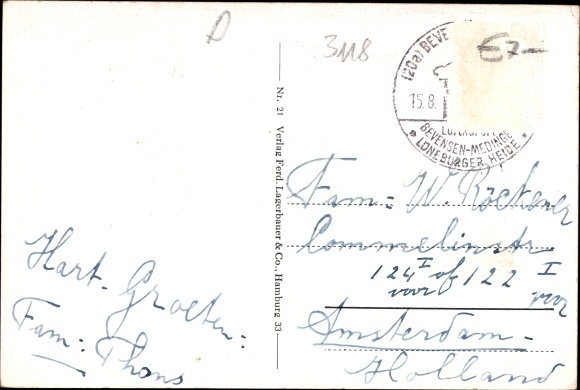 D
3118
€7-
(20a) BEVE
15.8.
BEVENSEN-MEDINGE
* LÜNEBURGER HEIDE *
Nr. 21 Verlag Ferd. Lagerbauer & Co., Hamburg 33
Hart. Groeten:
Fam: Thons
Fam= W. Röckener
Commelinstr
124 I of 122 I
voor voor
Amsterdam-
Holland